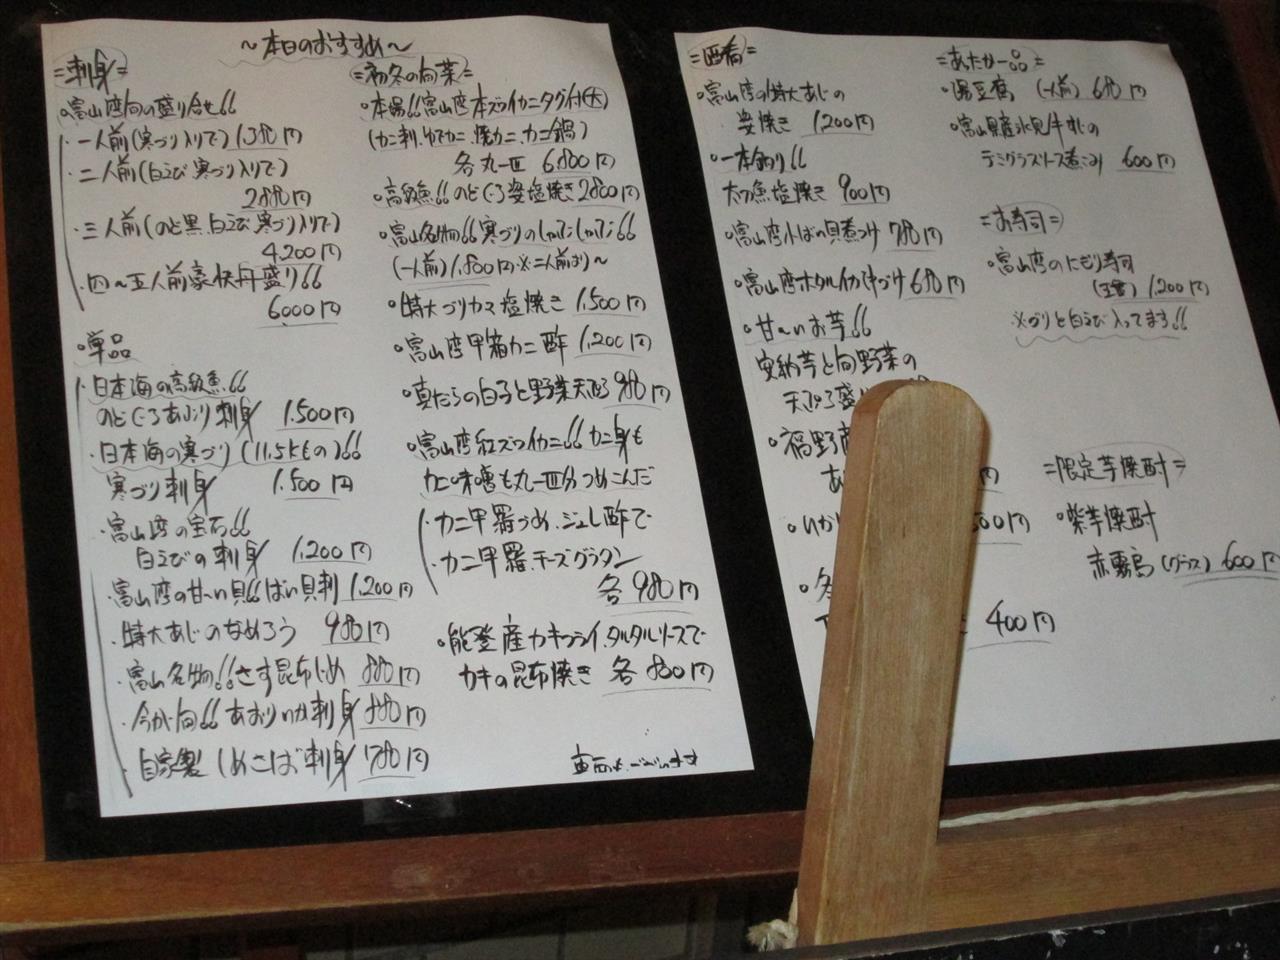 ～本日のおすすめ～
＝刺身＝
・富山湾旬の盛り合せ!!
・一人前(寒づり入りで) 1,380円
・二人前(白えび 寒づり入りで)
2880円
・三人前(のど黒、白えび、寒づり入りで)
4,200円
四～五人前豪快舟盛り!!
6000円
・単品
・日本海の高級魚!!
のどぐろあぶり刺身 1,500円
・日本海の寒づり(11.5kもの)!!
寒づり刺身 1,500円
・富山湾の宝石!!
白えびの刺身 1,200円
・富山湾の甘〜い貝!!ばい貝刺 1,200円
・特大あじのなめろう 980円
・富山名物!!さす昆布じめ 880円
・今が旬!!あおりいか刺身 880円
・自家製 しめさば刺身 780円
＝初冬の旬菜＝
・本場!!富山湾本ズワイカニタグ付(大)
(カニ刺、ゆでカニ、焼カニ、カニ鍋)
各丸一匹 6,800円
・高級魚!!のどぐろ姿塩焼き 2800円
・富山名物!!寒づりのしゃぶしゃぶ!!
(一人前) 1,880円 ※二人前より〜
・特大づりカマ塩焼き 1,500円
・富山湾甲箱カニ酢 1,200円
・真だらの白子と野菜天ぷら 980円
・富山湾紅ズワイカニ!!カニ身も
カニ味噌も丸一匹分つめこんだ
・カニ甲羅づめ、ジュレ酢で
・カニ甲羅、チーズグラタン
各 980円
・能登産カキフライ、タルタルソースで
カキの昆布焼き 各 880円
＝酒肴＝
・富山湾の特大あじの
姿焼き 1,200円
・一本釣り!!
太刀魚塩焼き 900円
・富山湾小ばい貝煮つけ 780円
・富山湾ホタルイカ沖づけ 680円
・甘〜いお芋!!
安納芋と旬野菜の
天ぷら盛り
・福野
円
・いか
00円
400円
＝あったか一品＝
・湯豆腐 (一人前) 680円
・富山県産氷見牛すじの
デミグラスソース煮こみ 600円
＝お寿司＝
・富山湾のにぎり寿司
1,200円
※づりと白えび入ってます!!
＝限定芋焼酎＝
・紫芋焼酎
赤霧島 (グラス) 600円